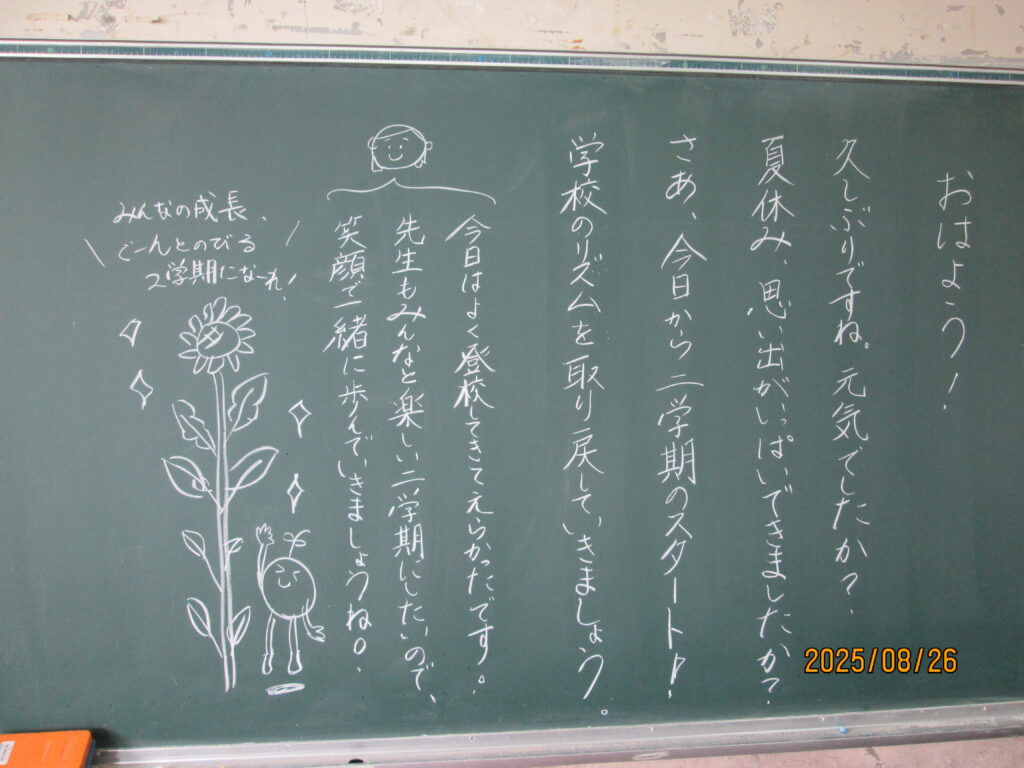 おはよう！
久しぶりですね。元気でしたか？
夏休み、思い出がいっぱいできましたか？
さあ、今日から二学期のスタート！
学校のリズムを取り戻していきましょう。
今日はよく登校してきてえらかったです。
先生もみんなと楽しい二学期にしたいので、
笑顔で一緒に歩んでいきましょうね。
みんなの成長、
ぐーんとのびる
2学期になーれ！
2025/08/26